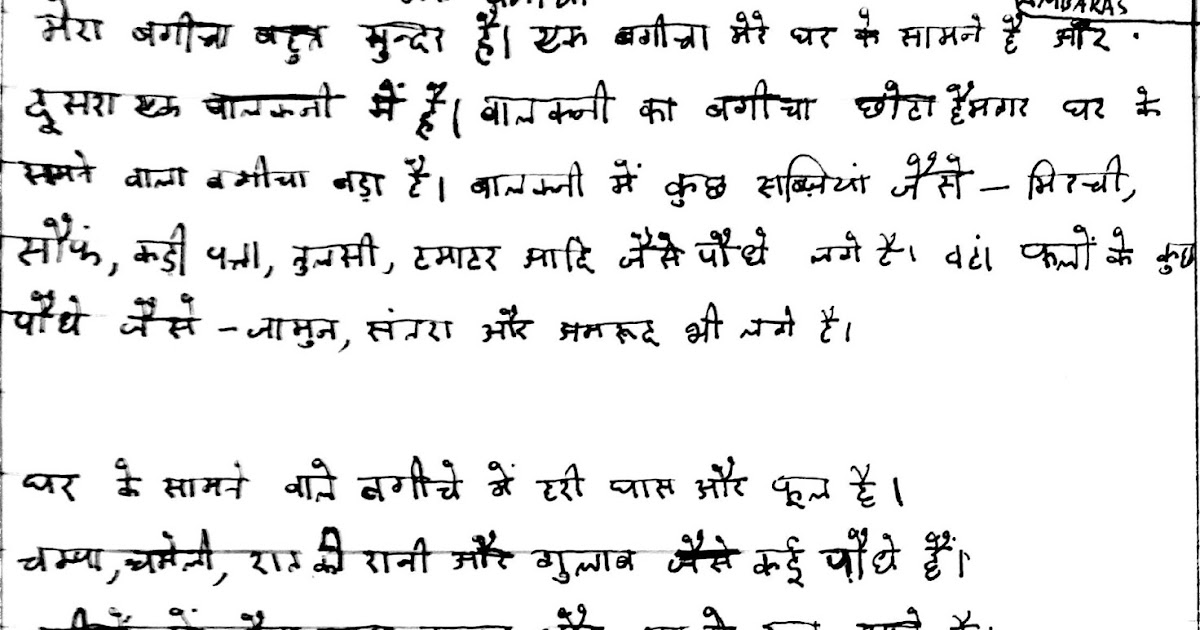 MBARAS
मेरा बगीचा बहुत सुन्दर है। एक बगीचा मेरे घर के सामने है और
दूसरा एक बालकनी में है। बालकनी का बगीचा छोटा है मगर घर के
सामने वाला बगीचा बड़ा है। बालकनी में कुछ सब्ज़ियां जैसे – मिरची,
सौंफ, कड़ी पत्ता, तुलसी, टमाटर आदि जैसे पौधे लगे है। वहां फलों के कुछ
पौधे जैसे – जामुन, संतरा और अमरूद भी लगे है।
घर के सामने वाले बगीचे में हरी घास और फूल है।
चम्पा, चमेली, रात की रानी और गुलाब जैसे कई पौधे हैं।